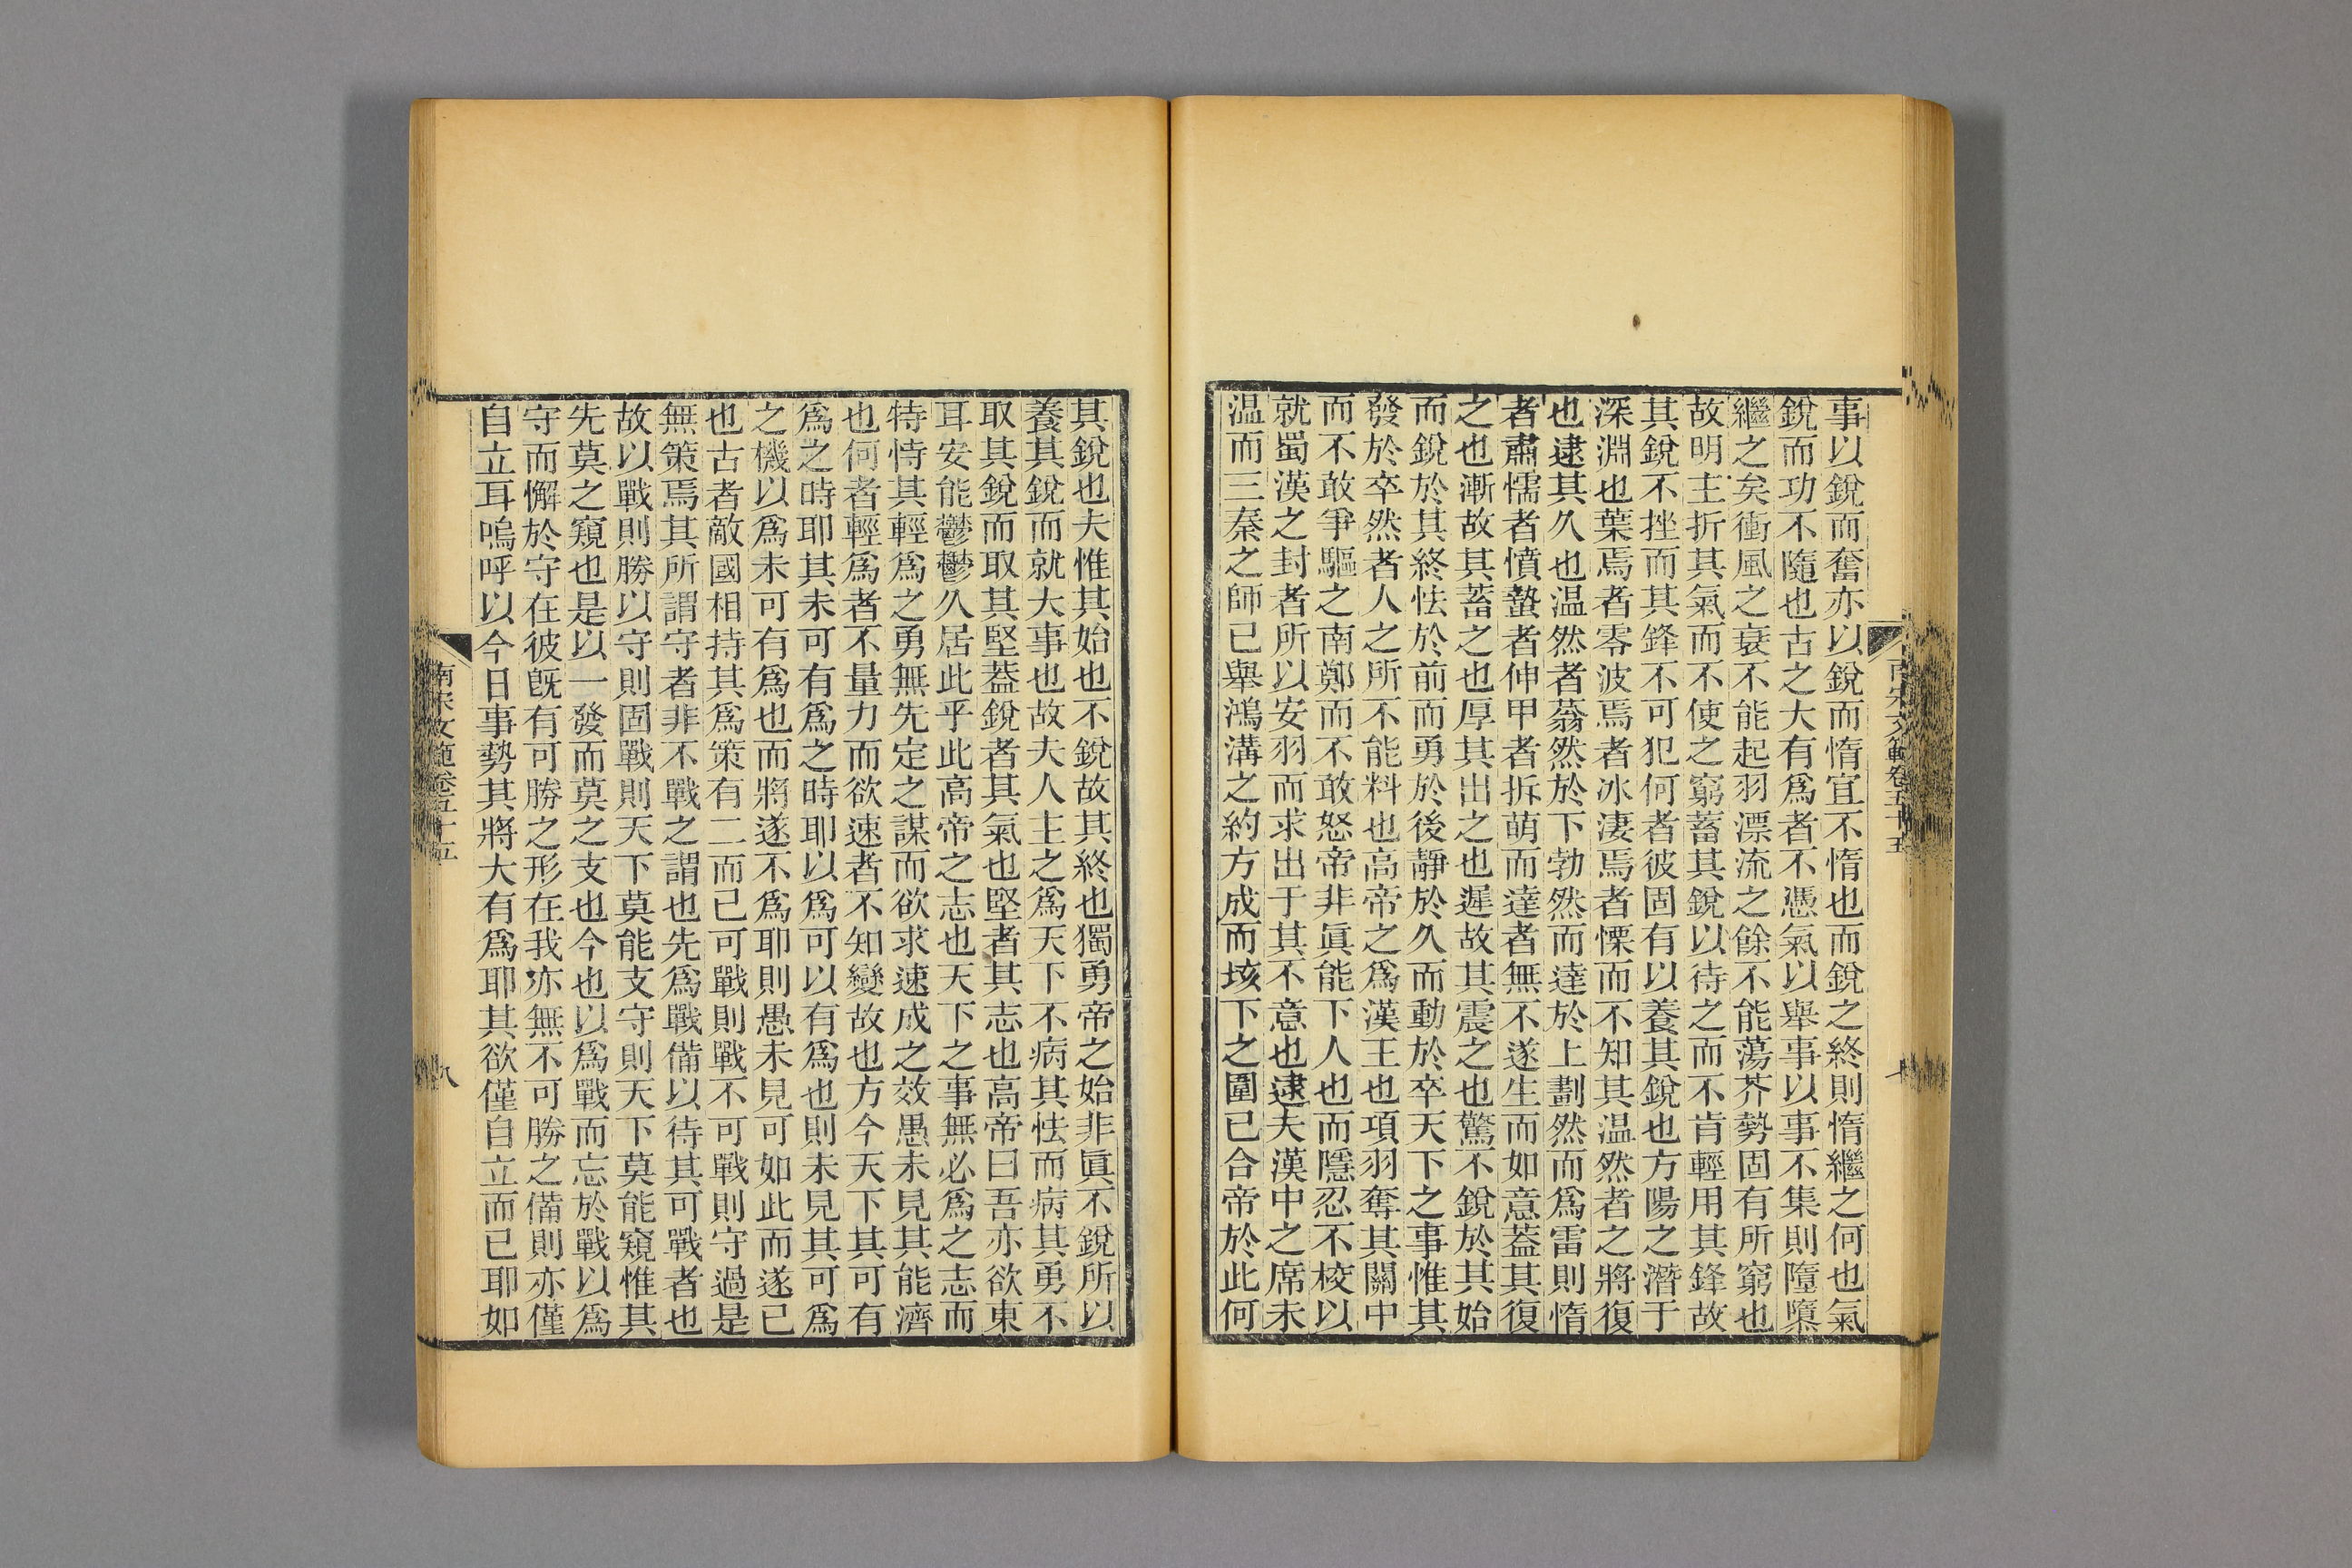 事以銳而奮亦以銳而惰宜不惰也而銳之終則惰繼之何也氣
銳而功不隨也古之大有爲者不憑氣以舉事以事不集則隳隳
繼之矣衝風之衰不能起羽漂流之餘不能蕩芥勢固有所窮也
故明主折其氣而不使之窮蓄其銳以待之而不肯輕用其鋒故
其銳不挫而其鋒不可犯何者彼固有以養其銳也方陽之潛于
深淵也葉焉者零波焉者冰淒焉者慄而不知其温然者之將復
也逮其久也温然者蓊然於下勃然而達於上劃然而爲雷則惰
者肅懦者憤蟄者伸甲者拆萌而達者無不遂生而如意蓋其復
之也漸故其蓄之也厚其出之也遲故其震之也驚不銳於其始
而銳於其終怯於前而勇於後靜於久而動於卒天下之事惟其
發於卒然者人之所不能料也高帝之爲漢王也項羽奪其關中
而不敢爭驅之南鄭而不敢怒帝非眞能下人也而隱忍不校以
就蜀漢之封者所以安羽而求出于其不意也逮夫漢中之席未
温而三秦之師已舉鴻溝之約方成而垓下之圍已合帝於此何
南宋文範卷五十五
其銳也夫惟其始也不銳故其終也獨勇帝之始非眞不銳所以
養其銳而就大事也故夫人主之爲天下不病其怯而病其勇不
取其銳而取其堅蓋銳者其氣也堅者其志也高帝曰吾亦欲東
耳安能鬱鬱久居此乎此高帝之志也天下之事無必爲之志而
特恃其輕爲之勇無先定之謀而欲求速成之效愚未見其能濟
也何者輕爲者不量力而欲速者不知變故也方今天下其可有
爲之時耶其未可有爲之時耶以爲可以有爲也則未見其可爲
之機以爲未可有爲也而將遂不爲耶則愚未見可如此而遂已
也古者敵國相持其爲策有二而已可戰則戰不可戰則守過是
無策焉其所謂守者非不戰之謂也先爲戰備以待其可戰者也
故以戰則勝以守則固戰則天下莫能支守則天下莫能窺惟其
先莫之窺也是以一發而莫之支也今也以爲戰而忘於戰以爲
守而懈於守在彼旣有可勝之形在我亦無不可勝之備則亦僅
自立耳嗚呼以今日事勢其將大有爲耶其欲僅自立而已耶如
南宋文範卷五十五
八